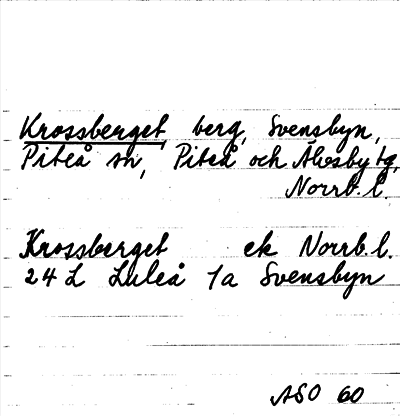 Krossberget, berg, Svensbyn,
Piteå sn, Piteå och Älvsby tg,
Norrb. l.
Krossberget ek Norrb. l.
24 L Luleå 1a Svensbyn
ASO 60